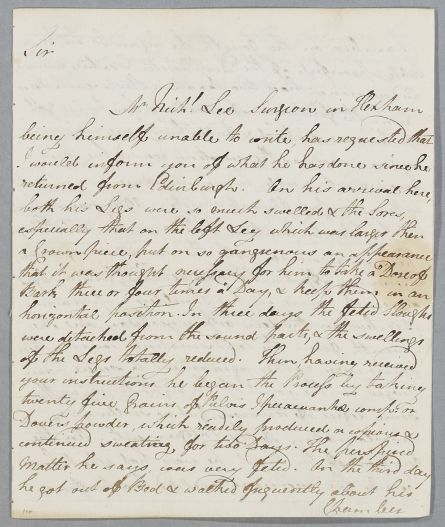 Sir
Mr Nichl. Lee Surgeon in Hexham
being himself unable to write has requested that
I would inform you of what he has done since he
returned from Edinburgh. On his arrival here,
both his Legs were so much swelled & the Sores,
especially that on the left Leg which was larger then
a Crown piece, put on so gangrenous an appearance
that it was thought necessary for him to take a Dose of
Bark three or four times a Day, & keep them in an
horizontal position. In three days the fetid Sloughs
were detached from the sound parts, & the swellings
of the Legs totally reduced. Then having received
your instructions he began the Process by taking
twenty five Grains of Pulvis Ipecacuanha comp: or
Dovers powder, which readily produced a copious &
continued sweating for two Days. The perspired
Matter he says, was very fetid. On the third day
he got out of Bed & walked frequently about his
Chamber